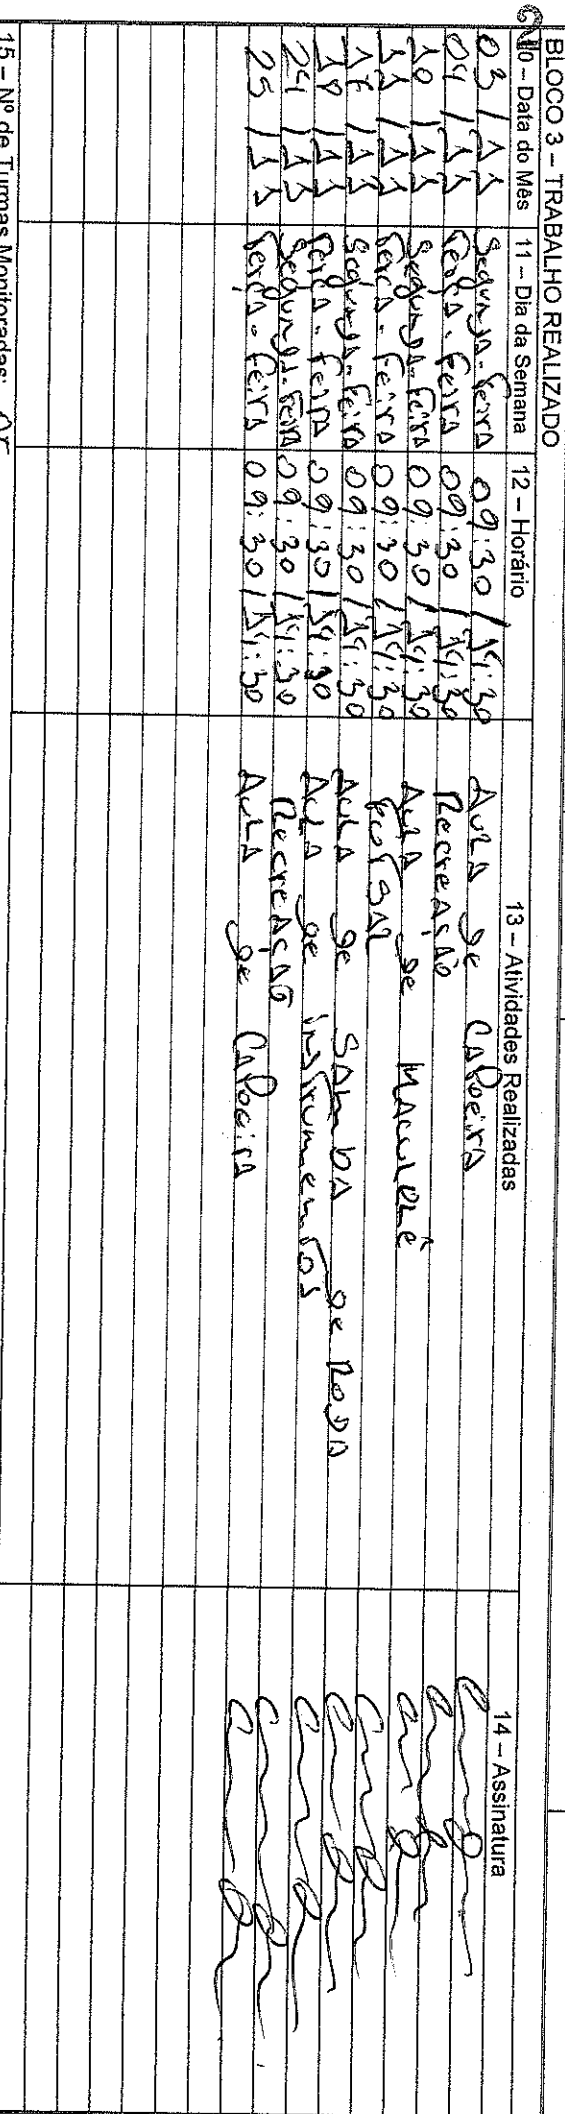 BLOCO 3 – TRABALHO REALIZADO
10 – Data do Mês 11 – Dia da Semana 12 – Horário 13 – Atividades Realizadas 14 – Assinatura
03/11 Segunda-feira 09:30/14:30 Aula de Capoeira
04/11 Terça-feira 09:30/14:30 Recreação
10/11 Segunda-feira 09:30/14:30 Aula de Maculelê
11/11 Terça-feira 09:30/14:30 Futsal
17/11 Segunda-feira 09:30/14:30 Aula de Samba de Roda
18/11 Terça-feira 09:30/14:30 Aula de instrumentos
24/11 Segunda-feira 09:30/14:30 Recreação
25/11 Terça-feira 09:30/14:30 Aula de Capoeira
15 – Nº de Turmas Monitoradas: